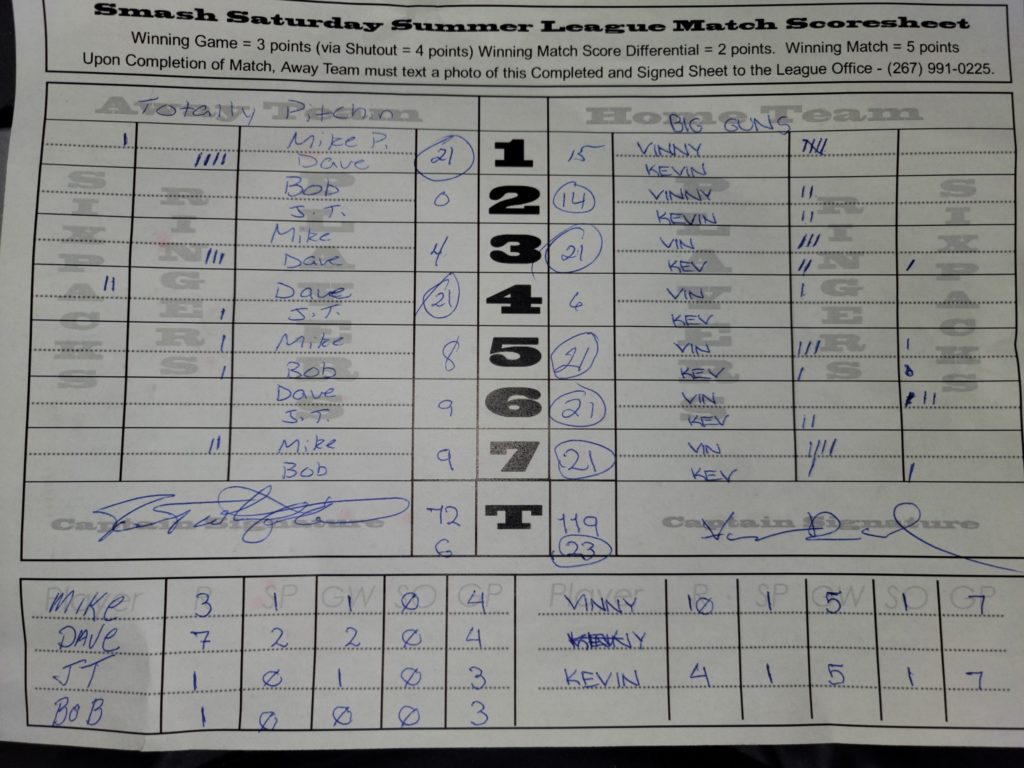 Smash Saturday Summer League Match Scoresheet
Winning Game = 3 points (via Shutout = 4 points) Winning Match Score Differential = 2 points. Winning Match = 5 points
Upon Completion of Match, Away Team must text a photo of this Completed and Signed Sheet to the League Office - (267) 991-0225.
Away Team Home Team
Totally Pitchn BIG GUNS
SIXPACKS RINGERS PLAYERS PLAYERS RINGERS SIXPACKS
Mike P. 21 1 15 VINNY
Dave KEVIN
Bob 0 2 14 VINNY
J.T. KEVIN
Mike 4 3 21 VIN
Dave KEV
Dave 21 4 6 VIN
J.T. KEV
Mike 8 5 21 VIN
Bob KEV
Dave 9 6 21 VIN
J.T. KEV
Mike 9 7 21 VIN
Bob KEV
Captain Signature 72 T 119 Captain Signature
6 23
Player R SP GW SO GP Player R SP GW SO GP
MIKE 3 1 1 0 4 VINNY 10 1 5 1 7
DAVE 7 2 2 0 4
JT 1 0 1 0 3 KEVIN 4 1 5 1 7
BOB 1 0 0 0 3